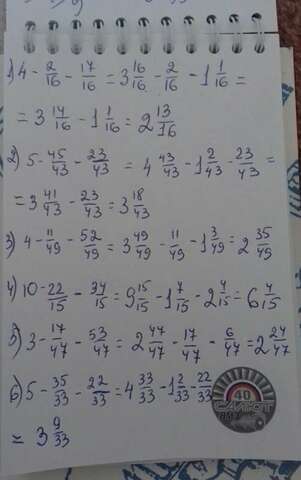 1) 4 - 2/16 - 17/16 = 3 16/16 - 2/16 - 1 1/16 =
= 3 14/16 - 1 1/16 = 2 13/16
2) 5 - 45/43 - 23/43 = 4 43/43 - 1 2/43 - 23/43 =
= 3 41/43 - 23/43 = 3 18/43
3) 4 - 11/49 - 52/49 = 3 49/49 - 11/49 - 1 3/49 = 2 35/49
4) 10 - 22/15 - 34/15 = 9 15/15 - 1 7/15 - 2 4/15 = 6 4/15
5) 3 - 17/47 - 53/47 = 2 47/47 - 17/47 - 6/47 = 2 24/47
6) 5 - 35/33 - 22/33 = 4 33/33 - 1 2/33 - 22/33
= 3 9/33
40
САЛЮТ